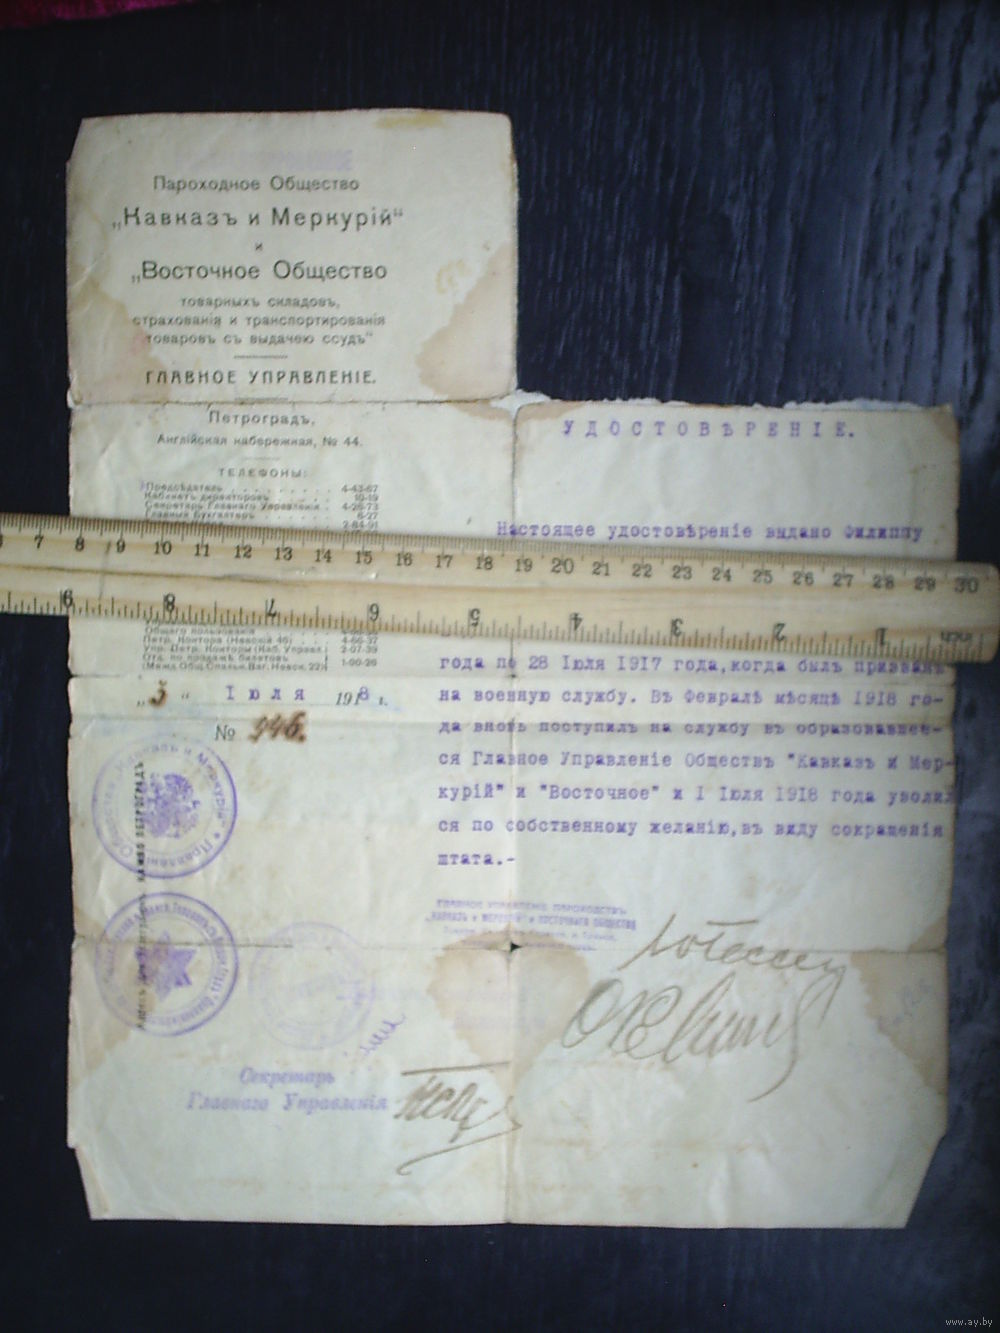 Пароходное Общество
„Кавказъ и Меркурій“
и
„Восточное Общество
товарныхъ складовъ,
страхованія и транспортированія
товаровъ съ выдачею ссудъ“
ГЛАВНОЕ УПРАВЛЕНІЕ.
Петроградъ,
Англійская набережная, № 44.
ТЕЛЕФОНЫ:
Предсѣдатель 4-43-67
Кабинетъ директоровъ 10-19
Секретарь Главнаго Управленія 4-26-73
Главный Бухгалтеръ 6-27
2-84-91
Общаго пользованія
Петр. Контора (Невскій 46) 4-66-37
Упр. Петр. Конторы (Каб. Управл.) 2-07-39
Отд. по продажѣ билетовъ
(Межд. Общ. Спальн. Ваг. Невск. 22) 1-00-26
„5“ Іюля 1918 г.
№ 946.
УДОСТОВѢРЕНІЕ.
Настоящее удостовѣреніе выдано Филиппу
года по 28 Іюля 1917 года,когда былъ призванъ
на военную службу. Въ Февралѣ мѣсяцѣ 1918 го-
да вновь поступилъ на службу въ образовавшее-
ся Главное Управленіе Обществъ "Кавказъ и Мер-
курій" и "Восточное" и 1 Іюля 1918 года уволил
ся по собственному желанію,въ виду сокращенія
штата.-
ГЛАВНОЕ УПРАВЛЕНІЕ ПАРОХОДСТВЪ
„КАВКАЗЪ и МЕРКУРІЙ“ и ВОСТОЧНАГО ОБЩЕСТВА
Секретарь
Главнаго Управленія
7 8 9 10 11 12 13 14 15 16 17 18 19 20 21 22 23 24 25 26 27 28 29 30
9 8 7 6 5 4 3 2 1 inch
www.ay.by